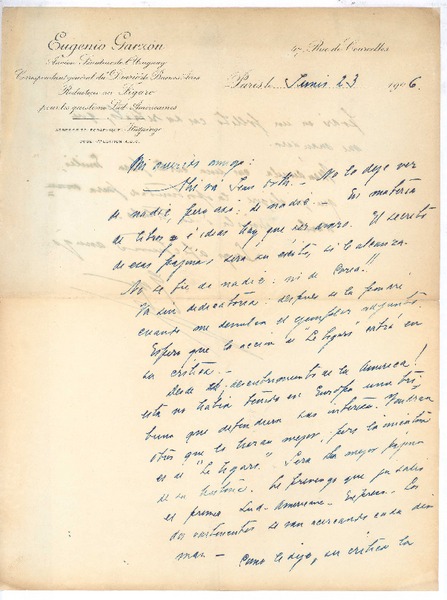 Eugenio Garzón
Ancien Sénateur de l'Uruguay
Correspondant général du "Diario" de Buenos Aires
Rédacteur au Figaro
pour les questions Sud-Américaines
47, Rue de Courcelles
Paris, le Junio 23 1906.
Mi querido amigo:
Ahí va No lo deje ver
de nadie, pero así: de nadie. En materia
de libros e ideas hay que ser avaro. El secreto
de esas páginas será su éxito, si lo alcanza.
No se fíe de nadie: ni de !!
Va sin dedicatoria: después se la pondré
cuando me devuelva el ejemplar adjunto.
Espero que la acción de Le Figaro entrará en
su crítica.
Desde el descubrimiento de la America!
esta no había tenido en Europa una tri
buna que defendiera sus intereses. Vendrán
otros que lo harán mejor, pero la iniciativa
es de "Le Figaro". Será la mejor página
de su historia. Le prevengo que ya salió
el primer Sud-Americane-Express. Los
dos continentes se van acercando cada día
mas—
Como le dije, su crítica la